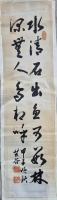 水清石出魚可數林
深無人鳥相呼